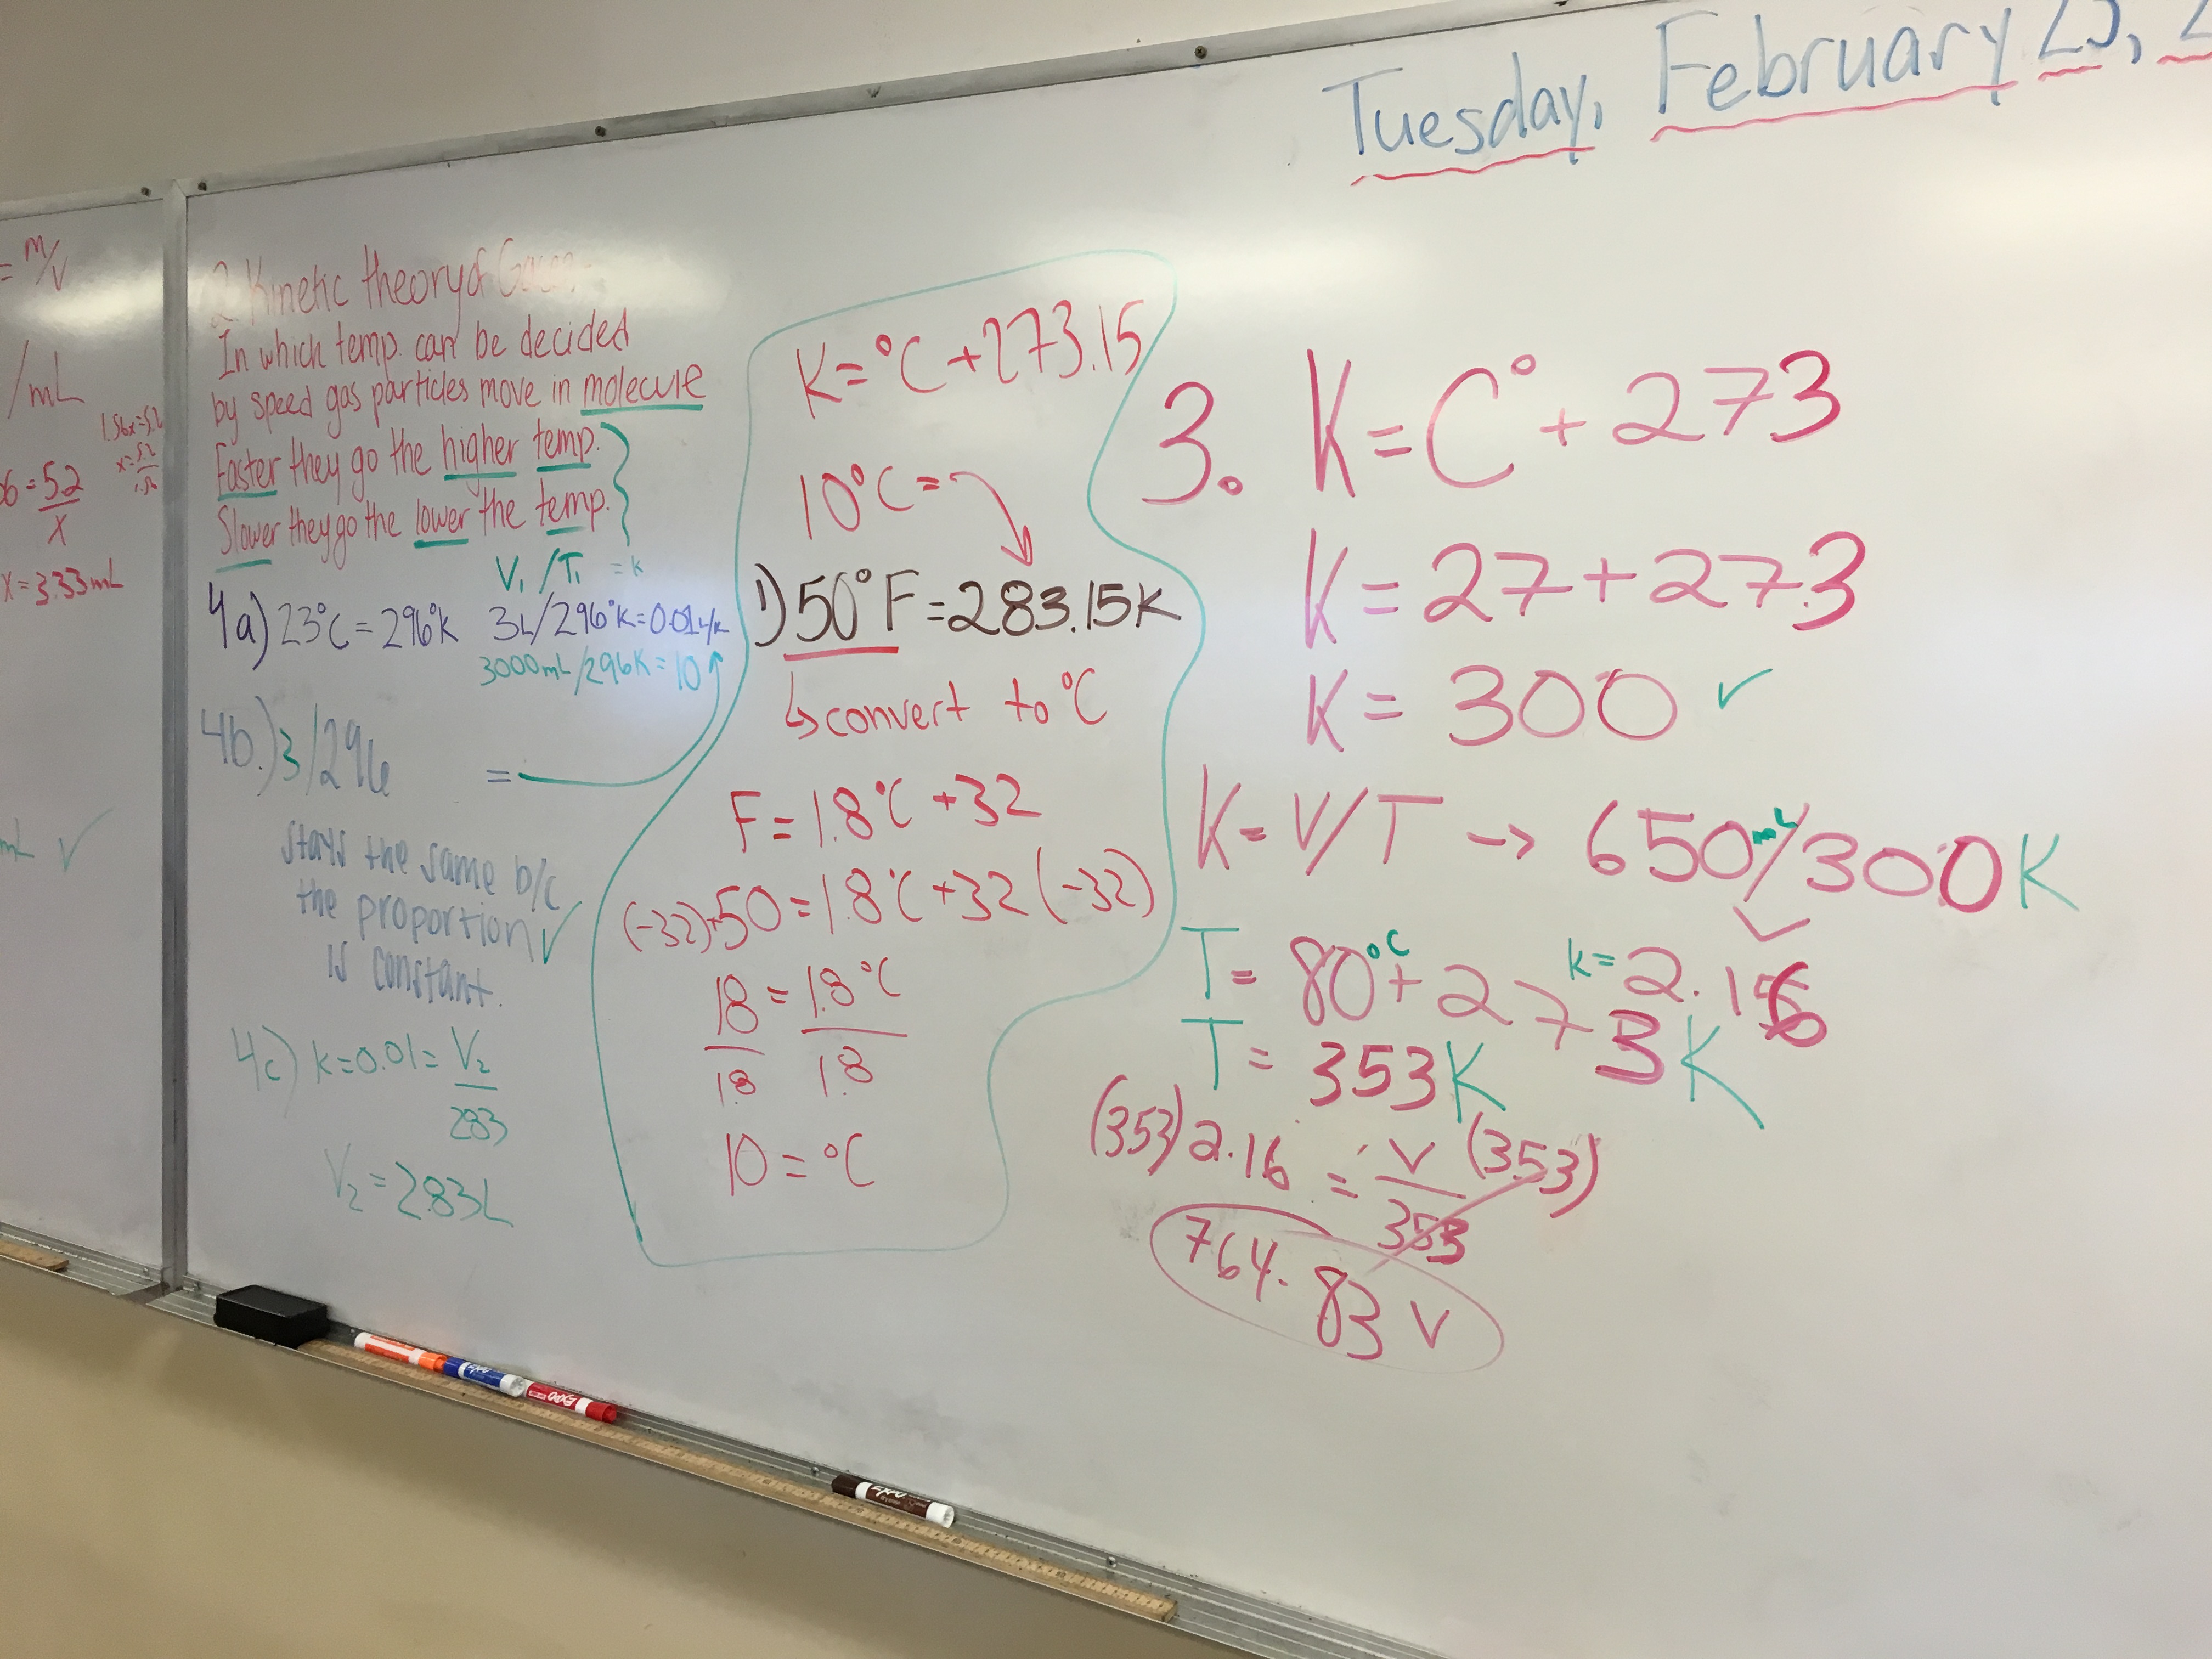 Tuesday, February
= m/V
/mL
1.56x=5.2
= 52
X
X = 3.33mL
mL ✓
2. Kinetic theory of Gases
In which temp. can be decided
by speed gas particles move in molecule
Faster they go the higher temp.
Slower they go the lower the temp.
V₁/T₁ = k
4a) 23°C = 296°K 3L/296°K = 0.01L/K
3000mL/296K = 10
4b.) 3/296 =
stays the same b/c
the proportion ✓
is constant.
4c) k=0.01= V₂
283
V₂ = 2.83L
K = °C + 273.15
10°C =
1) 50°F = 283.15K
↳ convert to °C
F = 1.8°C + 32
(-32)+50 = 1.8°C + 32 (-32)
18 = 1.8°C
1.8 1.8
10 = °C
3. K = C° + 273
K = 27 + 273
K = 300 ✓
K = V/T → 650mL/300K
T = 80°C + 273K
k = 2.16
T = 353K
(353) 2.16 = V (353)
353
764.83 V
EXPO
EXPO
EXPO